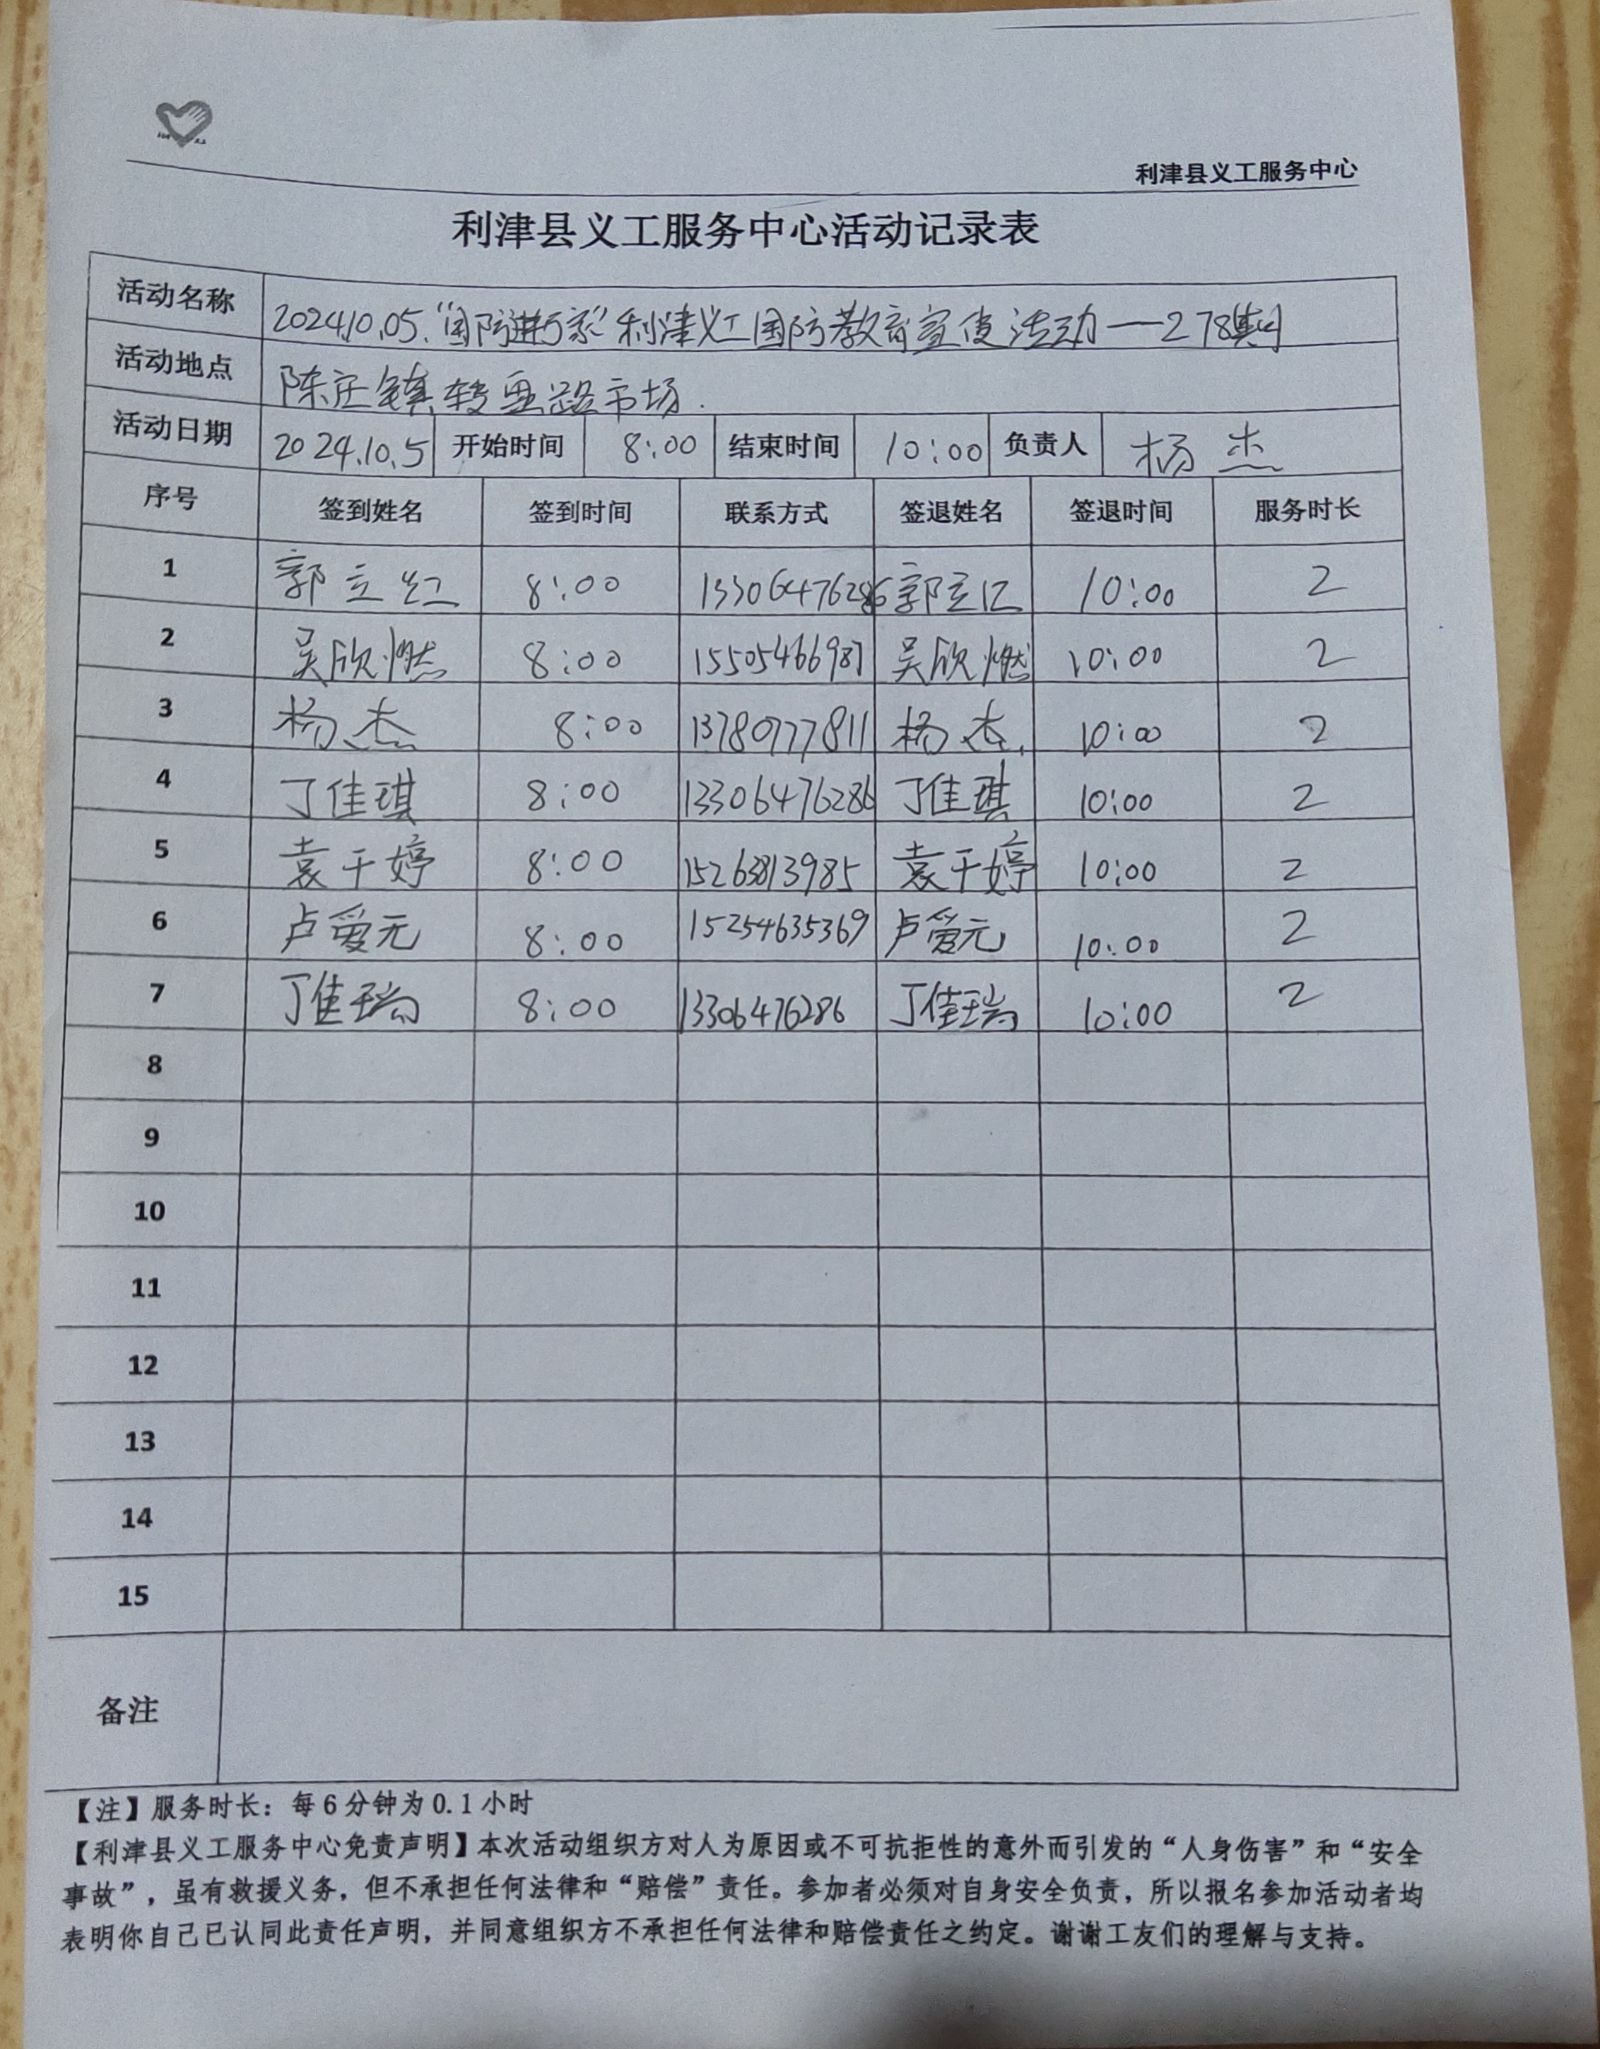 利津县义工服务中心
利津县义工服务中心活动记录表
活动名称 2024.10.05.“国防进万家”利津义工国防教育宣传活动——278期
活动地点 陈庄镇转盘路市场.
活动日期 2024.10.5 开始时间 8:00 结束时间 10:00 负责人 杨杰
序号 签到姓名 签到时间 联系方式 签退姓名 签退时间 服务时长
1 郭立红 8:00 13306476286 郭立红 10:00 2
2 吴欣燃 8:00 15505466987 吴欣燃 10:00 2
3 杨杰 8:00 13780777811 杨杰 10:00 2
4 丁佳琪 8:00 13306476286 丁佳琪 10:00 2
5 袁干婷 8:00 15263813985 袁干婷 10:00 2
6 卢爱元 8:00 15254635369 卢爱元 10:00 2
7 丁佳瑞 8:00 13306476286 丁佳瑞 10:00 2
8
9
10
11
12
13
14
15
备注
【注】服务时长：每6分钟为0.1小时
【利津县义工服务中心免责声明】本次活动组织方对人为原因或不可抗拒性的意外而引发的“人身伤害”和“安全
事故”，虽有救援义务，但不承担任何法律和“赔偿”责任。参加者必须对自身安全负责，所以报名参加活动者均
表明你自己已认同此责任声明，并同意组织方不承担任何法律和赔偿责任之约定。谢谢工友们的理解与支持。